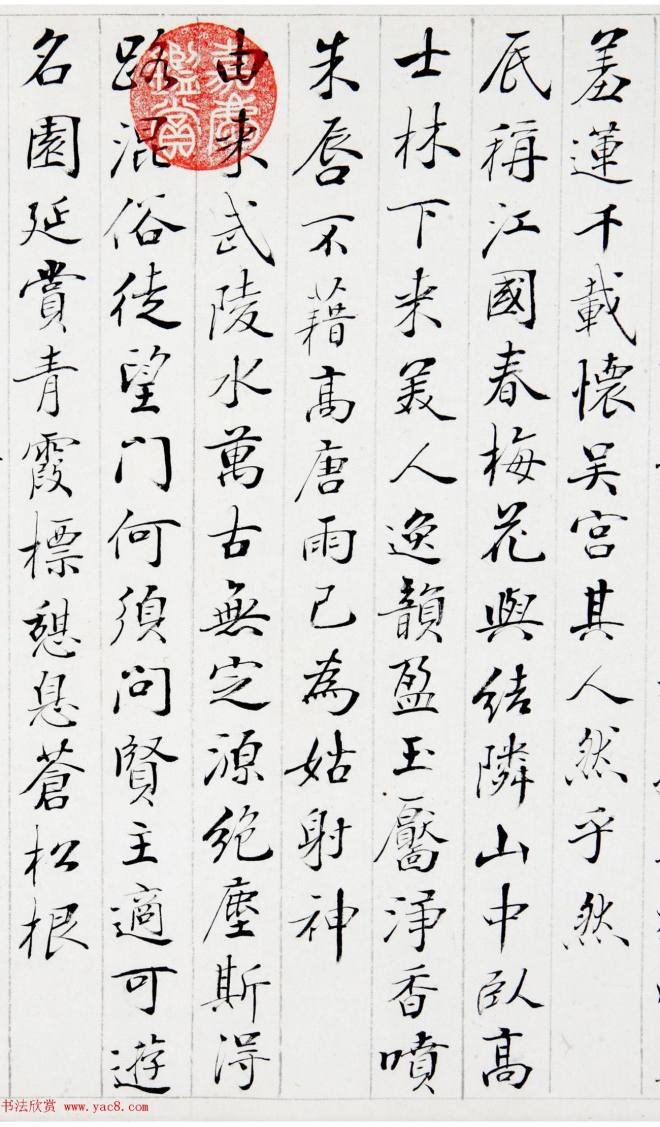 羞運千載懷吴宫其人然乎然
辰稱江國春梅花與結隣山中臥高
士林下来美人逸韻盈玉靨淨香噴
朱唇不藉高唐雨已為姑射神
由来武陵水萬古無定源絶塵斯得
路混俗徒望門何須問賢主適可遊
名園延賞青霞標憩息蒼松根
鑑賞
书法欣赏 www.yac8.com